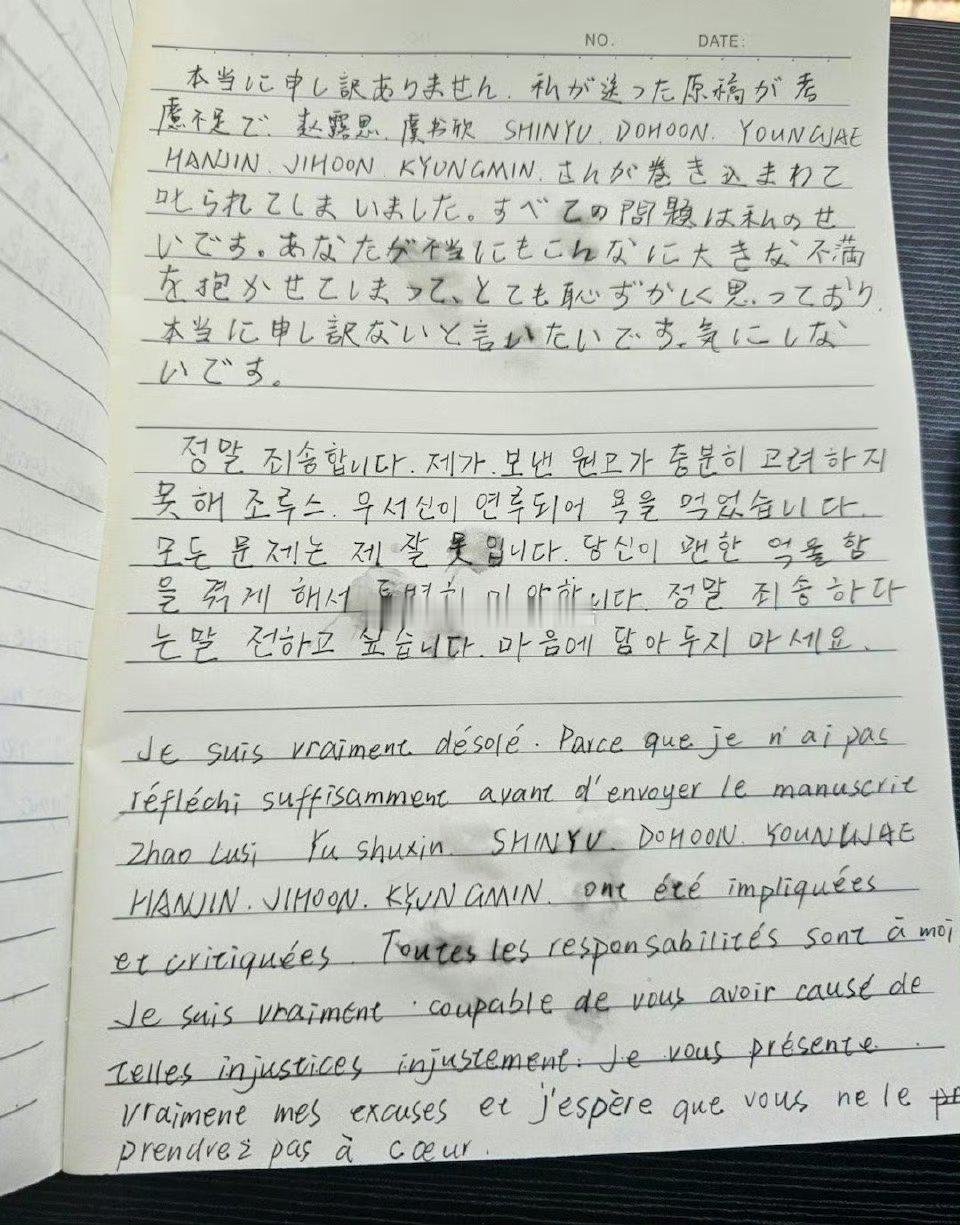 NO. DATE:
本当に申し訳ありません. 私が送った原稿が考
慮不足で. 赵露思. 虞书欣. SHINYU. DOHOON. YOUNGJAE
HANJIN. JIHOON. KYUNGMIN. さんが巻き込まわて
叱られてしまいました。すべての問題は私のせ
いです。あなたが不当にもこんなに大きな不満
を抱かせてしまって、とても恥ずかしく思っており
本当に申し訳ないと言いたいです。気にしな
いです。
정말 죄송합니다. 제가 보낸 원고가 충분히 고려하지
못해 조루스. 우서신이 연루되어 욕을 먹었습니다.
모든 문제는 제 잘못입니다. 당신이 괜한 억울함
을 겪게 해서 니다. 정말 죄송하다
는말 전하고 싶습니다. 마음에 담아 두지 마세요.
Je suis vraiment désolé. Parce que je n'ai pas
réfléchi suffisamment avant d'envoyer le manuscrit
Zhao Lusi Yu Shuxin. SHINYU. DOHOON. YOUNGJAE
HANJIN. JIHOON. KYUNGMIN. ont été impliquées
et critiquées. Toutes les responsabilités sont à moi
Je suis vraiment coupable de vous avoir causé de
telles injustices injustement. Je vous présente
vraiment mes excuses et j'espère que vous ne le
prendrez pas à cœur.